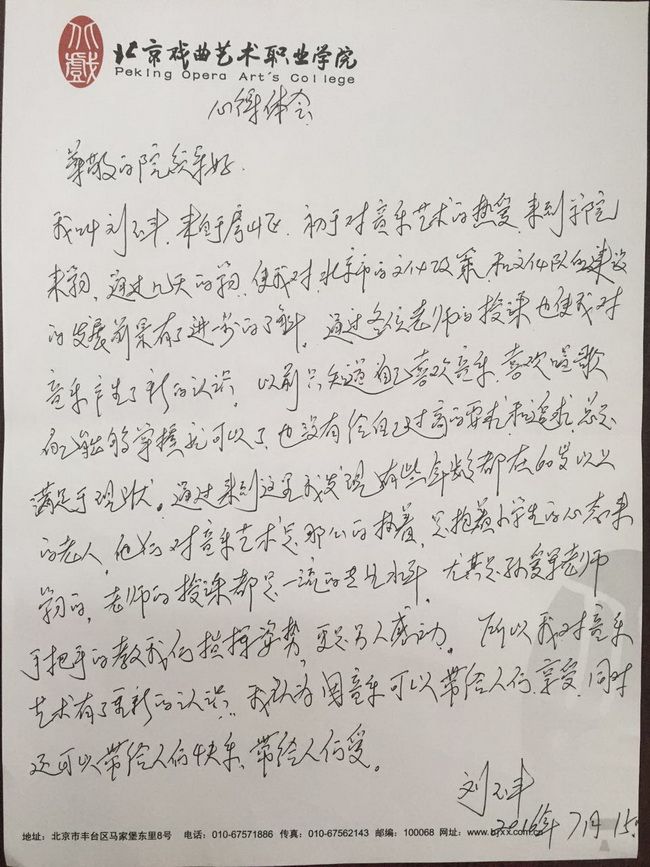 北戏
北京戏曲艺术职业学院
Peking Opera Art's College
心得体会
尊敬的院领导好.
我叫刘玉丰,来自房山区,初于对音乐艺术的热爱,来到学院
来学习,通过几天的学习,使我对北京市的文化政策,和文化队伍建设
的发展前景有了进一步的了解。通过各位老师的授课也使我对
音乐产生了新的认识。以前只知道自己喜欢音乐,喜欢唱歌
自己能够掌握就可以了,也没有给自己过高的要求和追求,总是
满足于现状。通过来到这里我发现有些年龄都在60岁以上
的老人,他们对音乐艺术是那么的执着,是抱着小学生的心态来
学习的,老师的授课都是一流的专业水平,尤其是孙爱军老师
手把手的教我们指挥姿势,更是另人感动。所以我对音乐
艺术有了重新的认识,我认为音乐可以带给人们享受,同时
还可以带给人们快乐、带给人们爱。
刘玉丰
2016年7月15
地址:北京市丰台区马家堡东里8号 电话:010-67571886 传真:010-67562143 邮编:100068 网址:www.bjxx.com